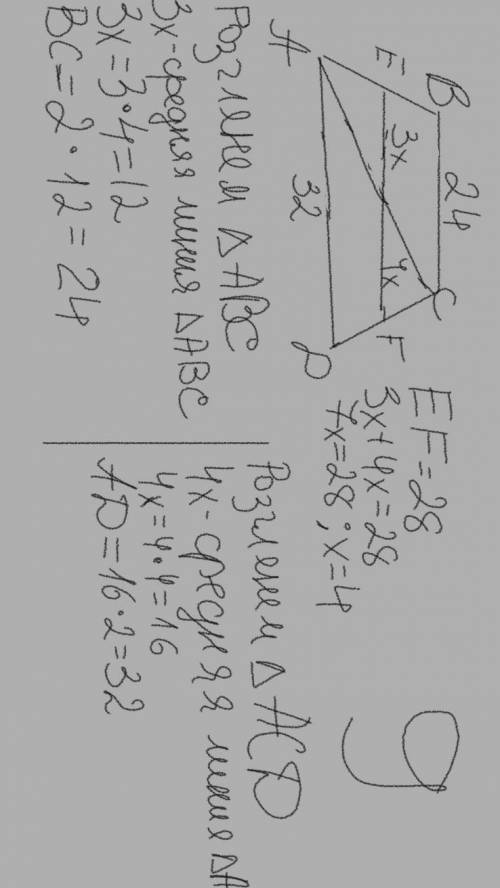 B 24 C
E 3x 4x F
A 32 D
EF = 28
3x + 4x = 28
7x = 28 ; x = 4
9
Розглянем △ ABC
3x - средняя линия △ ABC
3x = 3 · 4 = 12
BC = 2 · 12 = 24
Розглянем △ ACD
4x - средняя линия △ A
4x = 4 · 4 = 16
AD = 16 · 2 = 32